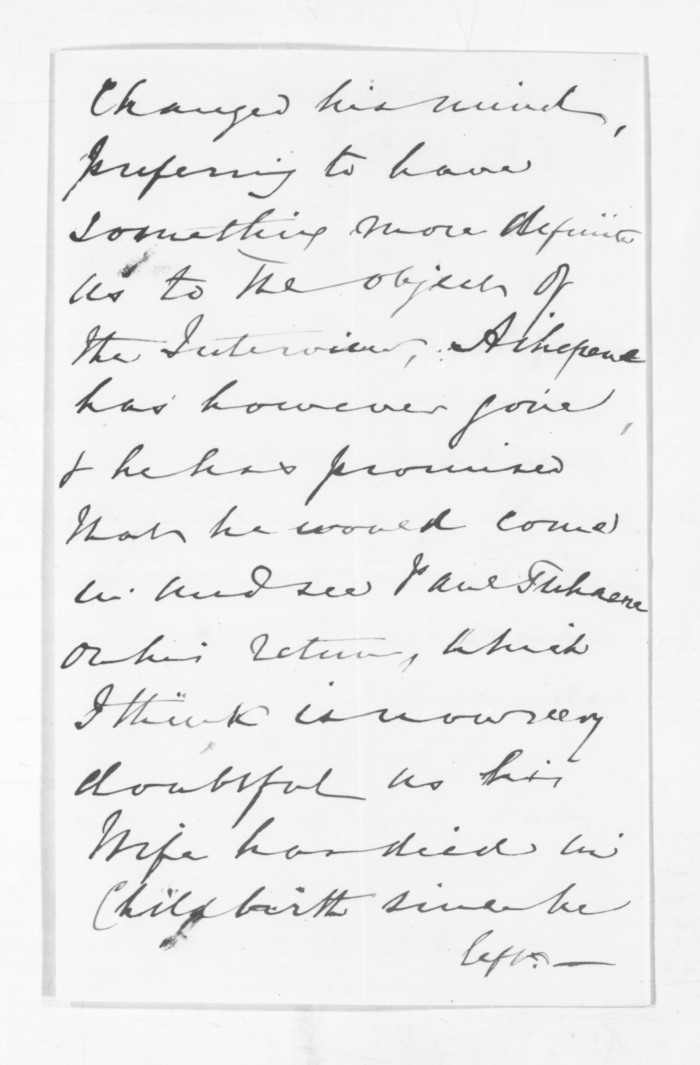 Changed his mind,
preferring to have
something more definite
as to the object of
the Interview,
has however gone,
& he has promised
that he would come
in and see Paul Tuhaere
on his return, which
I think is now very
doubtful as his
Wife has died in
Childbirth since he
left. —